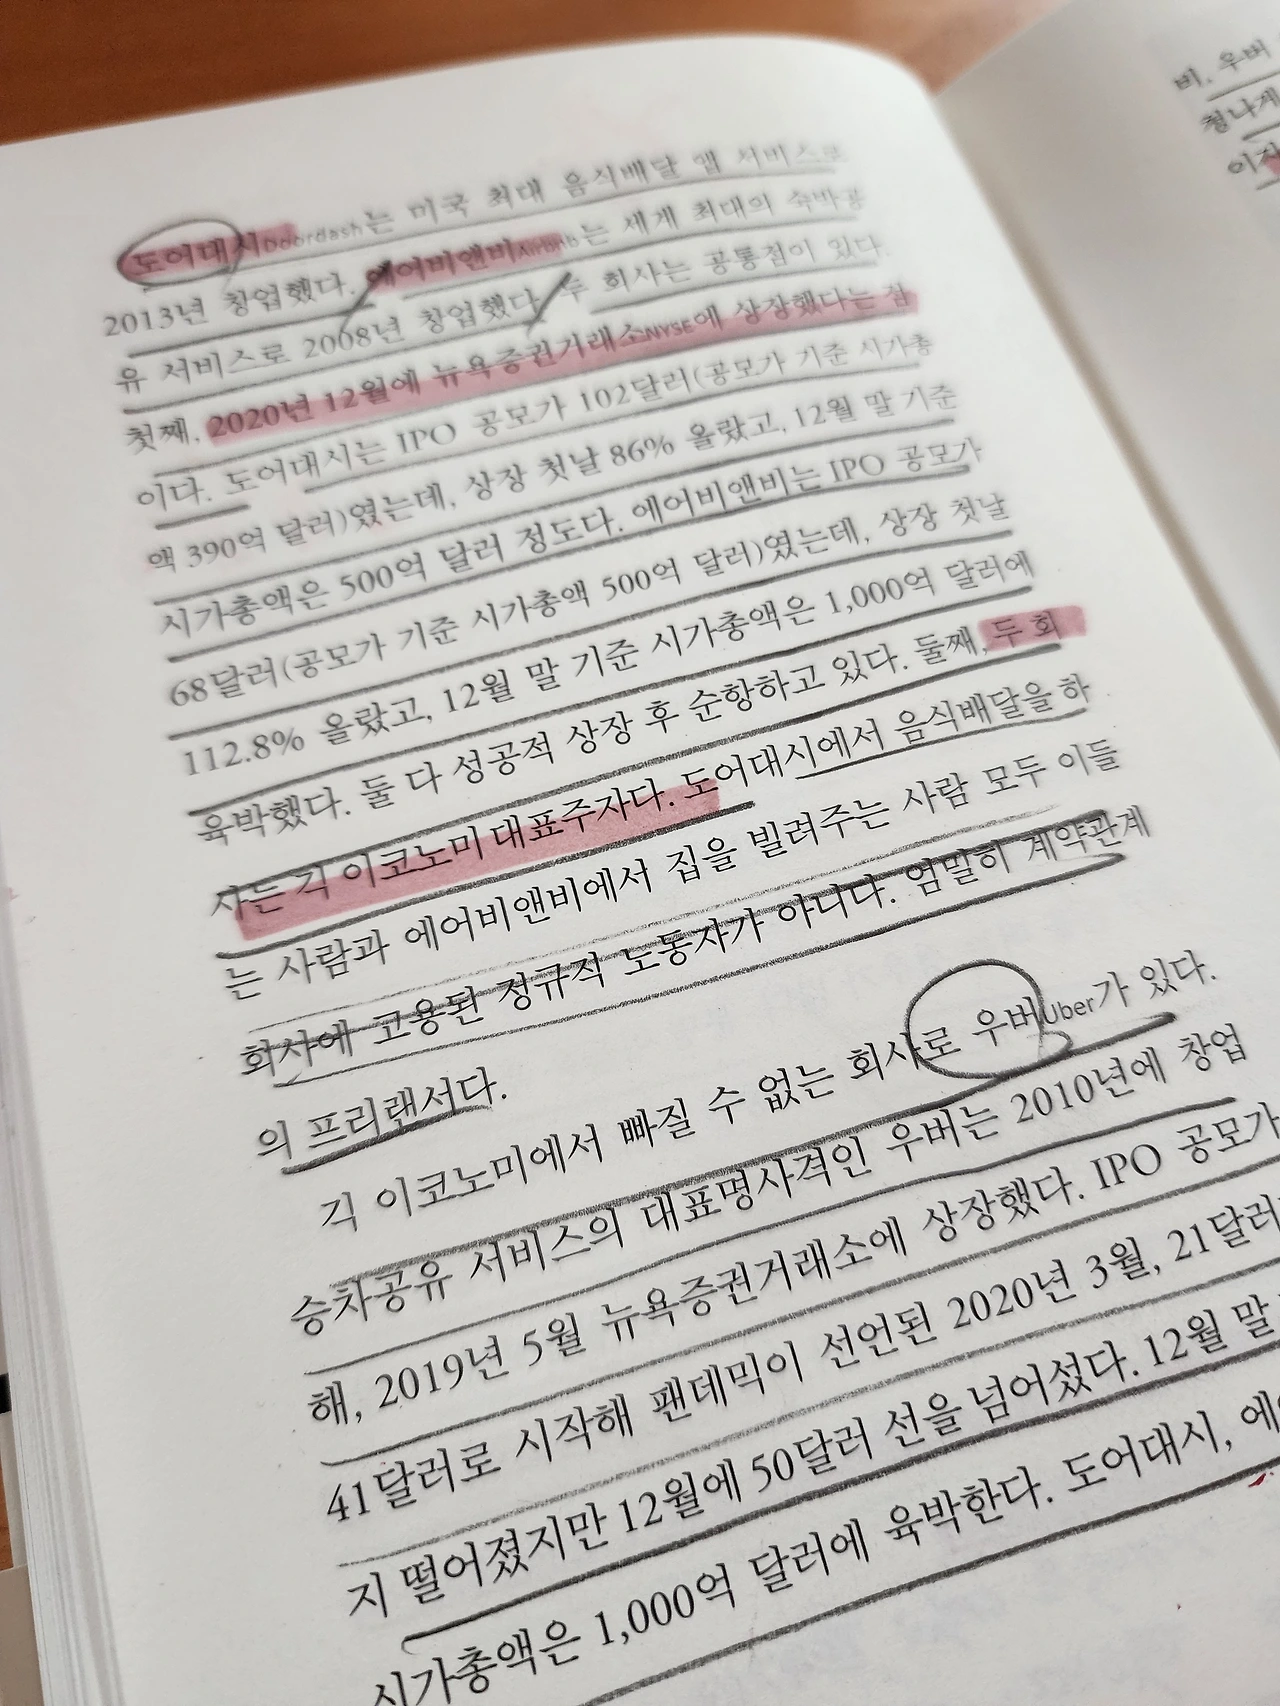 도어대시Doordash는 미국 최대 음식배달 앱 서비스로
2013년 창업했다. 에어비앤비Airbnb는 세계 최대의 숙박공
유 서비스로 2008년 창업했다. 두 회사는 공통점이 있다.
첫째, 2020년 12월에 뉴욕증권거래소NYSE에 상장했다는 점
이다. 도어대시는 IPO 공모가 102달러(공모가 기준 시가총
액 390억 달러)였는데, 상장 첫날 86% 올랐고, 12월 말 기준
시가총액은 500억 달러 정도다. 에어비앤비는 IPO 공모가
68달러(공모가 기준 시가총액 500억 달러)였는데, 상장 첫날
112.8% 올랐고, 12월 말 기준 시가총액은 1,000억 달러에
육박했다. 둘 다 성공적 상장 후 순항하고 있다. 둘째, 두 회
사는 긱 이코노미 대표주자다. 도어대시에서 음식배달을 하
는 사람과 에어비앤비에서 집을 빌려주는 사람 모두 이들
회사에 고용된 정규직 노동자가 아니다. 엄밀히 계약관계
의 프리랜서다.
긱 이코노미에서 빠질 수 없는 회사로 우버Uber가 있다.
승차공유 서비스의 대표명사격인 우버는 2010년에 창업
해, 2019년 5월 뉴욕증권거래소에 상장했다. IPO 공모가
41달러로 시작해 팬데믹이 선언된 2020년 3월, 21달러
지 떨어졌지만 12월에 50달러 선을 넘어섰다. 12월 말
시가총액은 1,000억 달러에 육박한다. 도어대시, 에
비, 우버
청나게